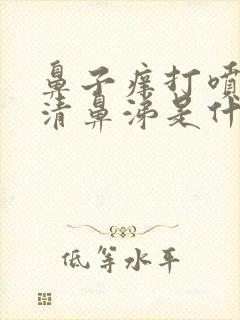 鼻子痒打喷
清鼻涕是什
低等水平